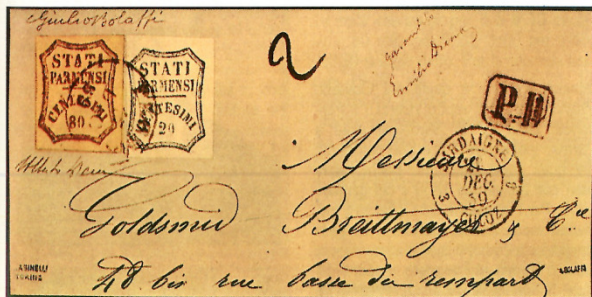 Giulio Bolaffi
STATI
PARMENSI
CENTESIMI
80
STATI
PARMENSI
CENTESIMI
20
2
garantito
Emilio Diena
P.D
SARDAIGNE
DEC.
59
3 CULOZ 3
Messieurs
Goldsmid Breittmayer & Cie
48 bis rue basse du rempart
ASINELLI
TORINO
A. BOLAFFI